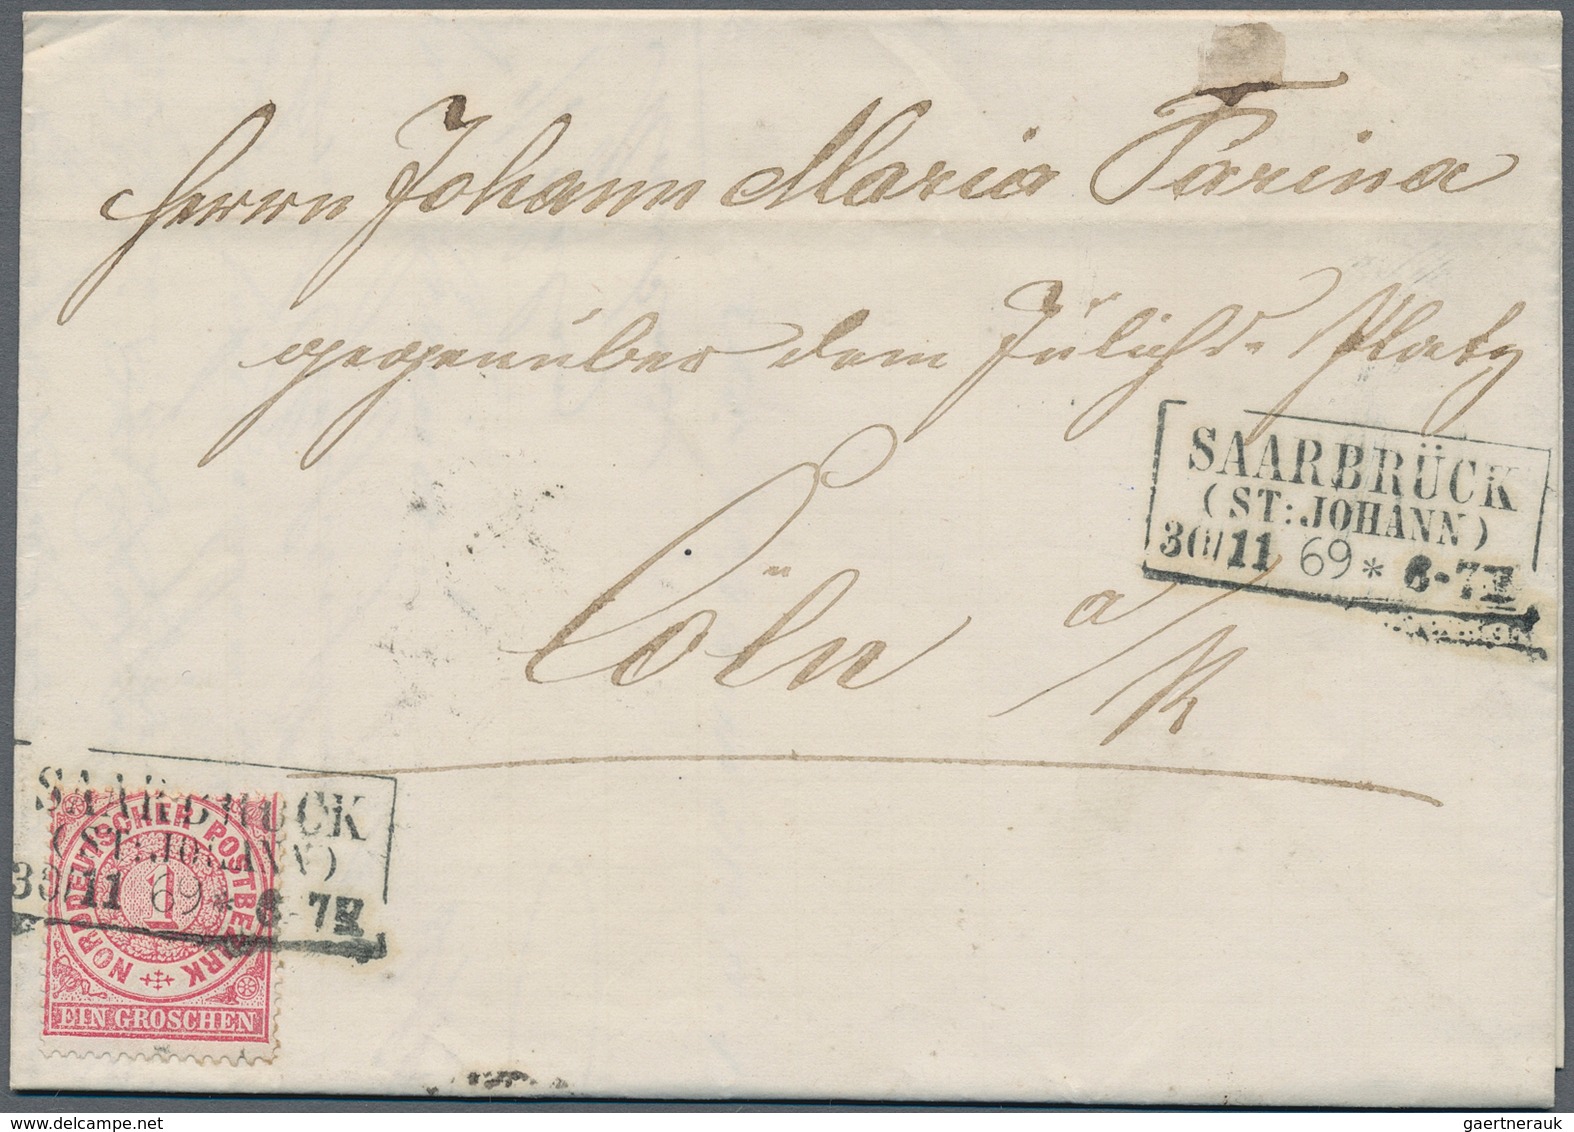 Herrn Johann Maria Farina
gegenüber dem Jülichs- Platz
Cöln a/R
SAARBRÜCK
(ST: JOHANN)
30/11 69 * 6-7N
SAARBRÜCK
(ST: JOHANN)
30/11 69 * 6-7N
NORDDEUTSCHER POSTBEZIRK
1
EIN GROSCHEN
gaertnerauk